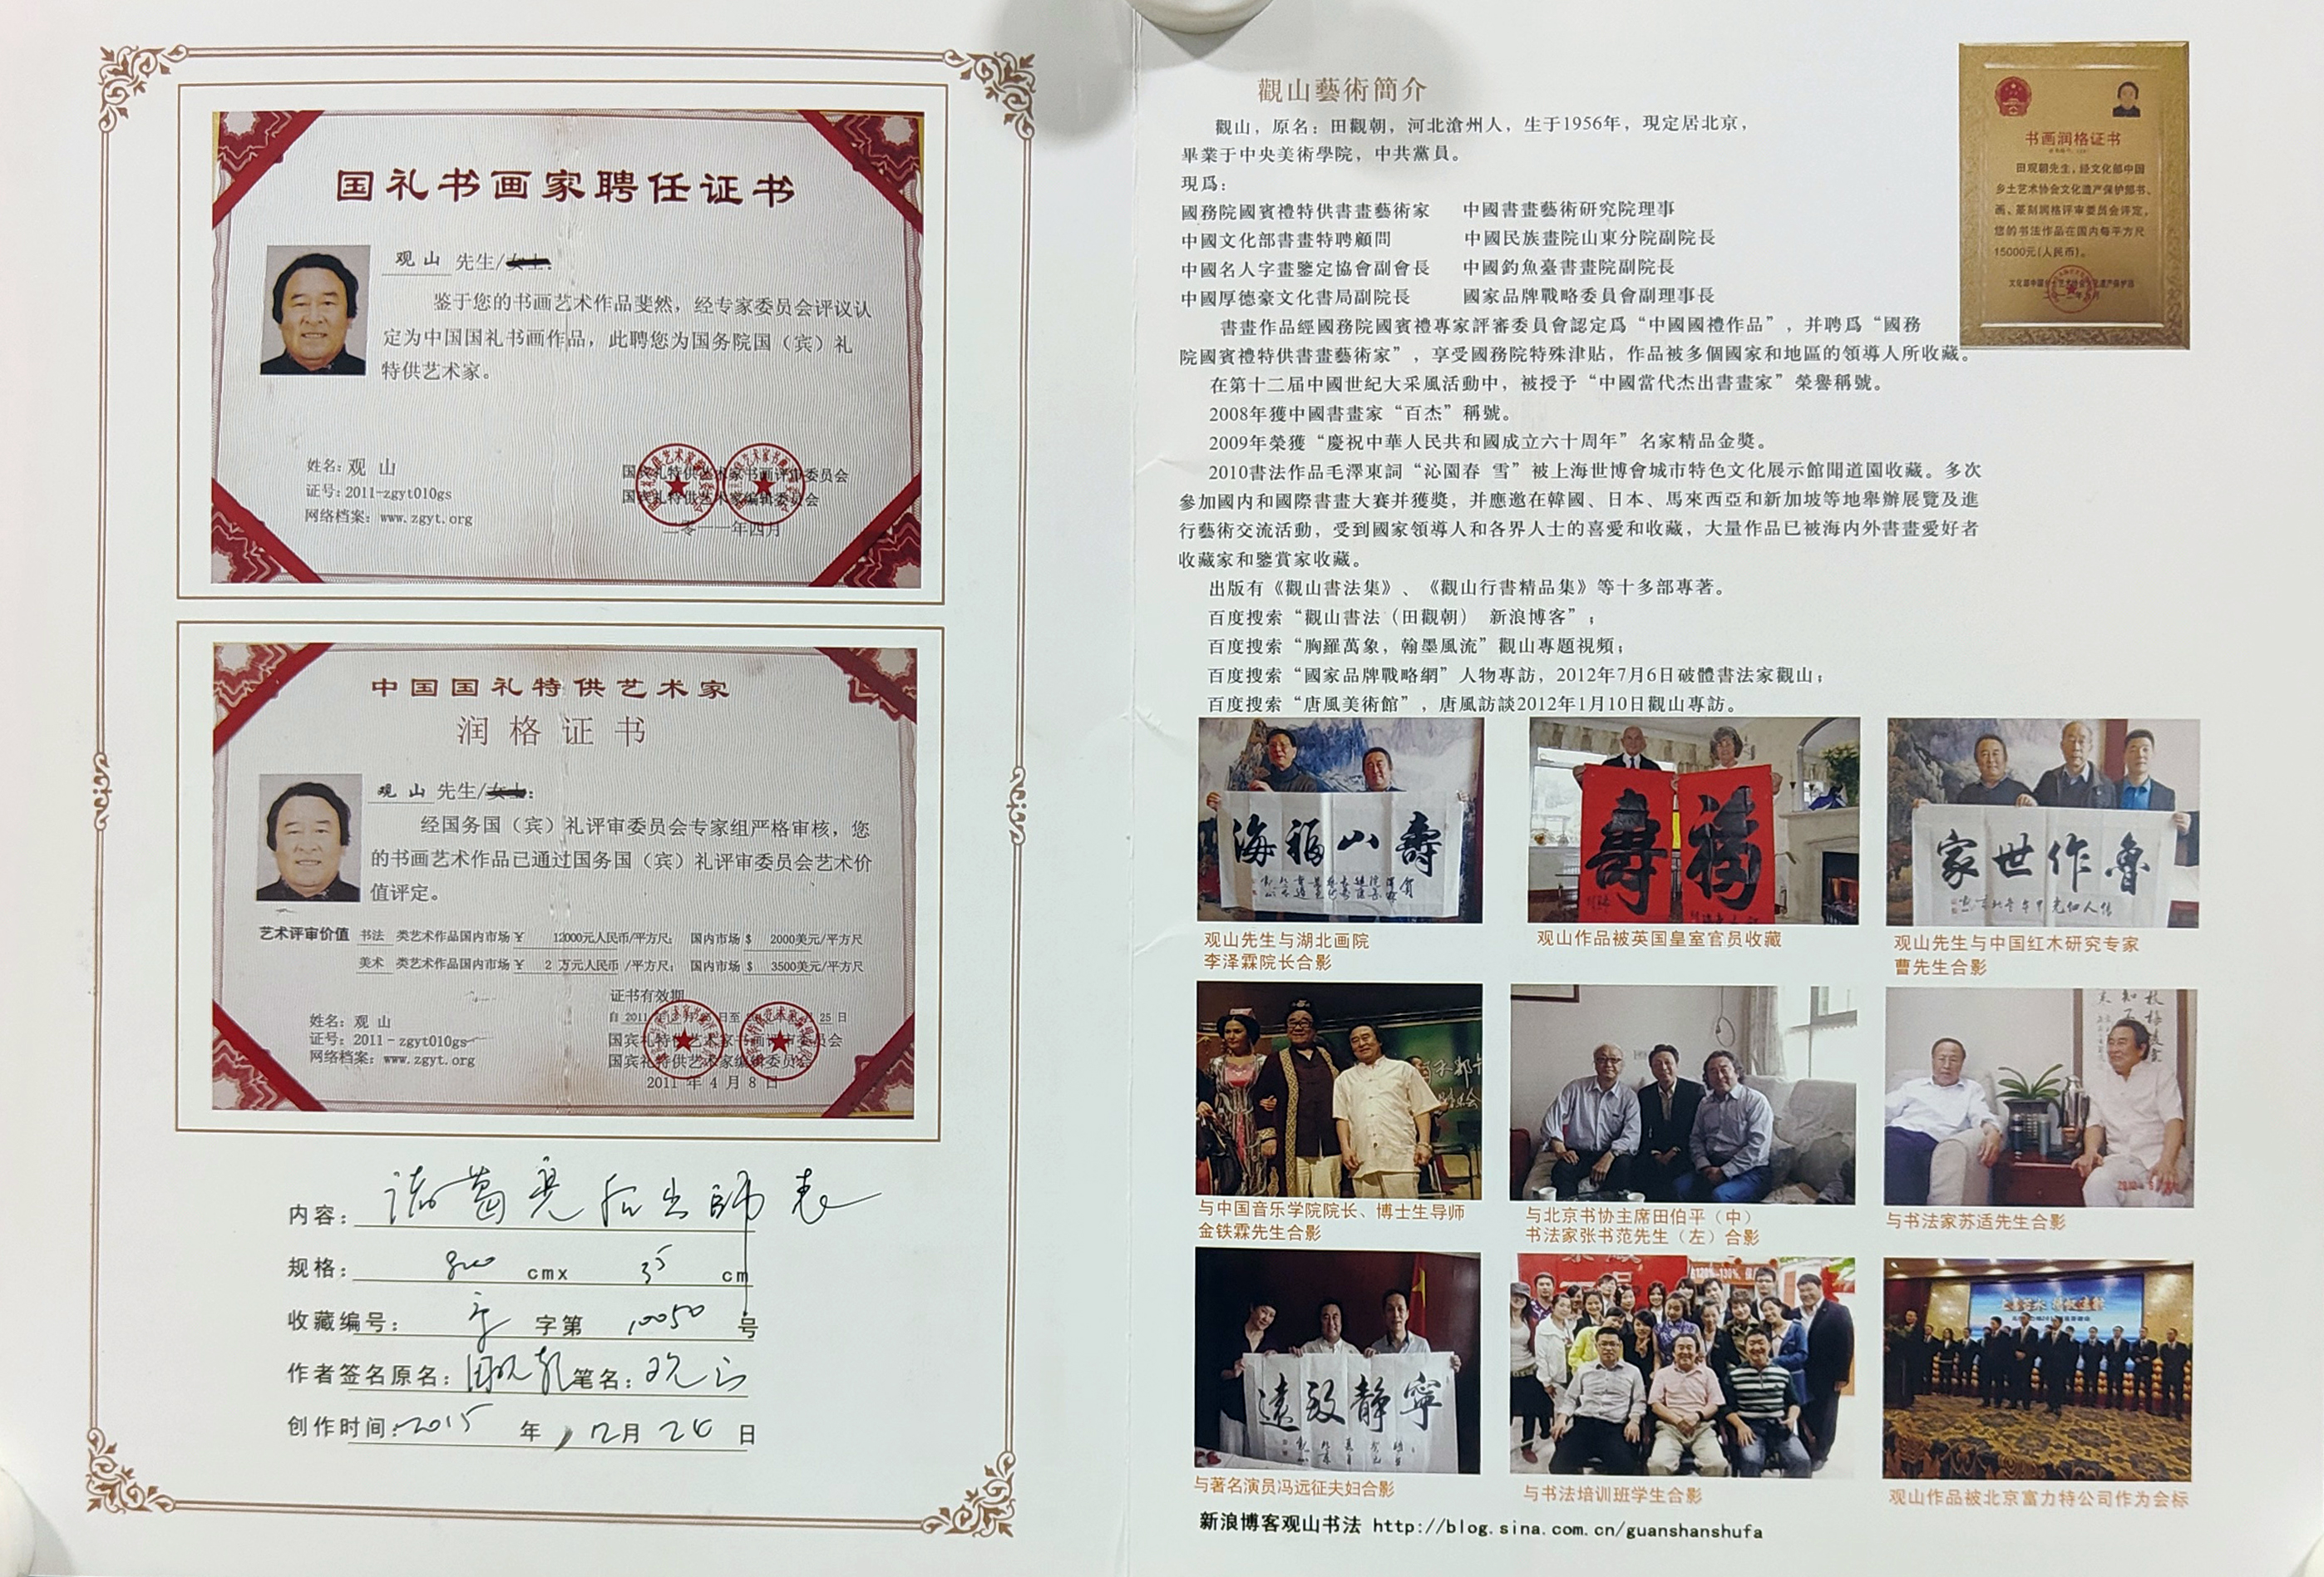 国礼书画家聘任证书
观山 先生/女士:
鉴于您的书画艺术作品斐然，经专家委员会评议认
定为中国国礼书画作品，此聘您为国务院国（宾）礼
特供艺术家。
姓名: 观 山
证号: 2011-zgyt010gs
网络档案: www.zgyt.org
国宾礼特供艺术家书画评审委员会
国宾礼特供艺术家编辑委员会
二零一一年四月
中国国礼特供艺术家
润格证书
观山 先生/女士:
经国务国（宾）礼评审委员会专家组严格审核，您
的书画艺术作品已通过国务国（宾）礼评审委员会艺术价
值评定。
艺术评审价值 书法 类艺术作品国内市场￥ 12000元人民币/平方尺; 国内市场 $ 2000美元/平方尺
美术 类艺术作品国内市场￥ 2 万元人民币 /平方尺; 国内市场 $ 3500美元/平方尺
证书有效期
姓名: 观 山
证号: 2011-zgyt010gs
网络档案: www.zgyt.org
自 2011
25 日
国宾礼特供艺术家书画评审委员会
国宾礼特供艺术家编辑委员会
2011 年 4 月 8 日
内容: 诸葛亮后出師表
规格: 800 cmx 35 cm
收藏编号: 字第 10050 号
作者签名原名: 田观朝 笔名: 观山
创作时间: 2015 年 12月 26 日
觀山藝術簡介
觀山，原名：田觀朝，河北滄州人，生于1956年，現定居北京，
畢業于中央美術學院，中共黨員。
現爲：
國務院國賓禮特供書畫藝術家 中國書畫藝術研究院理事
中國文化部書畫特聘顧問 中國民族畫院山東分院副院長
中國名人字畫鑒定協會副會長 中國釣魚臺書畫院副院長
中國厚德豪文化書局副院長 國家品牌戰略委員會副理事長
書畫作品經國務院國賓禮專家評審委員會認定爲“中國國禮作品”，并聘爲“國務
院國賓禮特供書畫藝術家”，享受國務院特殊津貼，作品被多個國家和地區的領導人所收藏。
在第十二届中國世紀大采風活動中，被授予“中國當代杰出書畫家”榮譽稱號。
2008年獲中國書畫家“百杰”稱號。
2009年榮獲“慶祝中華人民共和國成立六十周年”名家精品金獎。
2010書法作品毛澤東詞“沁園春 雪”被上海世博會城市特色文化展示館聞道園收藏。多次
參加國内和國際書畫大賽并獲獎，并應邀在韓國、日本、馬來西亞和新加坡等地舉辦展覽及進
行藝術交流活動，受到國家領導人和各界人士的喜愛和收藏，大量作品已被海内外書畫愛好者
收藏家和鑒賞家收藏。
出版有《觀山書法集》、《觀山行書精品集》等十多部專著。
百度搜索“觀山書法（田觀朝） 新浪博客”；
百度搜索“胸羅萬象，翰墨風流”觀山專題視頻；
百度搜索“國家品牌戰略網”人物專訪，2012年7月6日破體書法家觀山；
百度搜索“唐風美術館”，唐風訪談2012年1月10日觀山專訪。
书画润格证书
田观朝先生，经文化部中国
乡土艺术协会文化遗产保护部书、
画、篆刻润格评审委员会评定，
您的书法作品在国内每平方尺
15000元(人民币)。
海福山壽
壽福
家世作魯
观山先生与湖北画院
李泽霖院长合影
观山作品被英国皇室官员收藏
观山先生与中国红木研究专家
曹先生合影
与中国音乐学院院长、博士生导师
金铁霖先生合影
与北京书协主席田伯平（中）
书法家张书范先生（左）合影
与书法家苏适先生合影
遠致静寧
与著名演员冯远征夫妇合影
与书法培训班学生合影
观山作品被北京富力特公司作为会标
新浪博客观山书法 http://blog.sina.com.cn/guanshanshufa